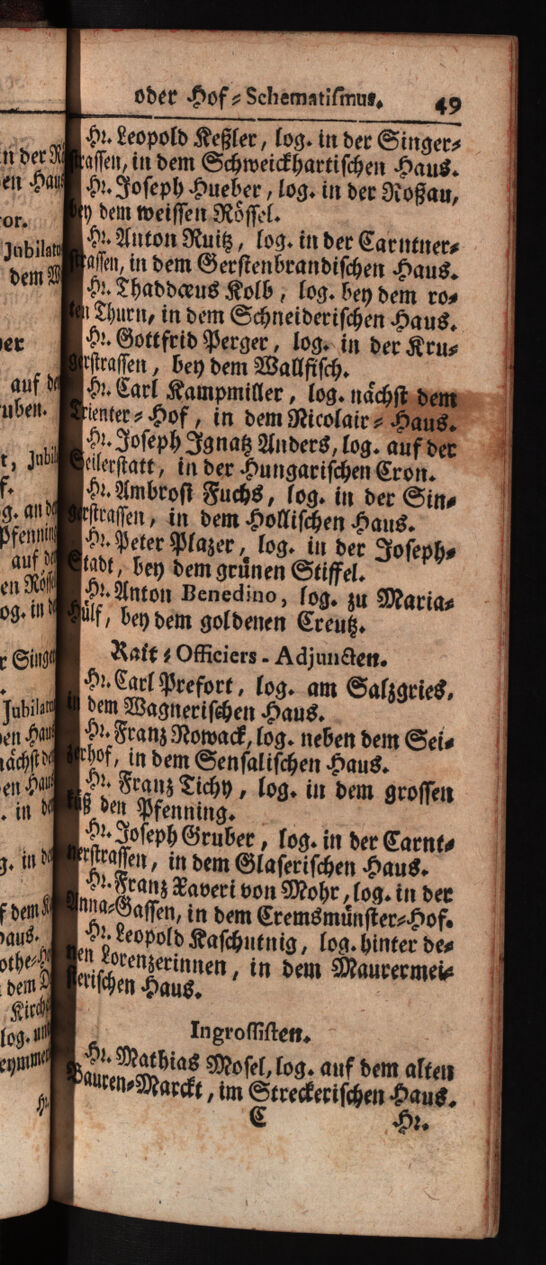 oder Hof-Schematismus. 49
Hr. Leopold Keßler, log. in der Singer-
rassen, in dem Schweickhartischen Haus.
Hr. Joseph Hueber, log. in der Roßau,
bey dem weissen Rössel.
Hr. Anton Ruitz, log. in der Carntner-
strassen, in dem Gerstenbrandischen Haus.
Hr. Thaddæus Kolb, log. bey dem ro-
ten Thurn, in dem Schneiderischen Haus.
Hr. Gottfrid Perger, log. in der Kru-
gerstrassen, bey dem Wallfisch.
Hr. Carl Kampmiller, log. nächst dem
Trienter-Hof, in dem Nicolair-Haus.
Hr. Joseph Ignatz Anders, log. auf der
Seilerstatt, in der Hungarischen Cron.
Hr. Ambrosi Fuchs, log. in der Sin-
gerstrassen, in dem Hollischen Haus.
Hr. Peter Plazer, log. in der Joseph-
Stadt, bey dem grünen Stiffel.
Hr. Anton Benedino, log. zu Maria-
Hülf, bey dem goldenen Creutz.
Rait-Officiers-Adjuncten.
Hr. Carl Prefort, log. am Salzgries,
in dem Wagnerischen Haus.
Hr. Franz Nowack, log. neben dem Sei-
zerhof, in dem Sensalischen Haus.
Hr. Franz Tichy, log. in dem grossen
Küß den Pfenning.
Hr. Joseph Gruber, log. in der Carnt-
nerstrassen, in dem Glaserischen Haus.
Hr. Franz Xaveri von Mohr, log. in der
Anna-Gassen, in dem Cremsmünster-Hof.
Hr. Leopold Kaschutnig, log. hinter de-
nen Lorenzerinnen, in dem Maurermei-
sterischen Haus.
Ingrossisten.
Hr. Mathias Mosel, log. auf dem alten
Bauren-Marckt, im Streckerischen Haus.
C Hr.